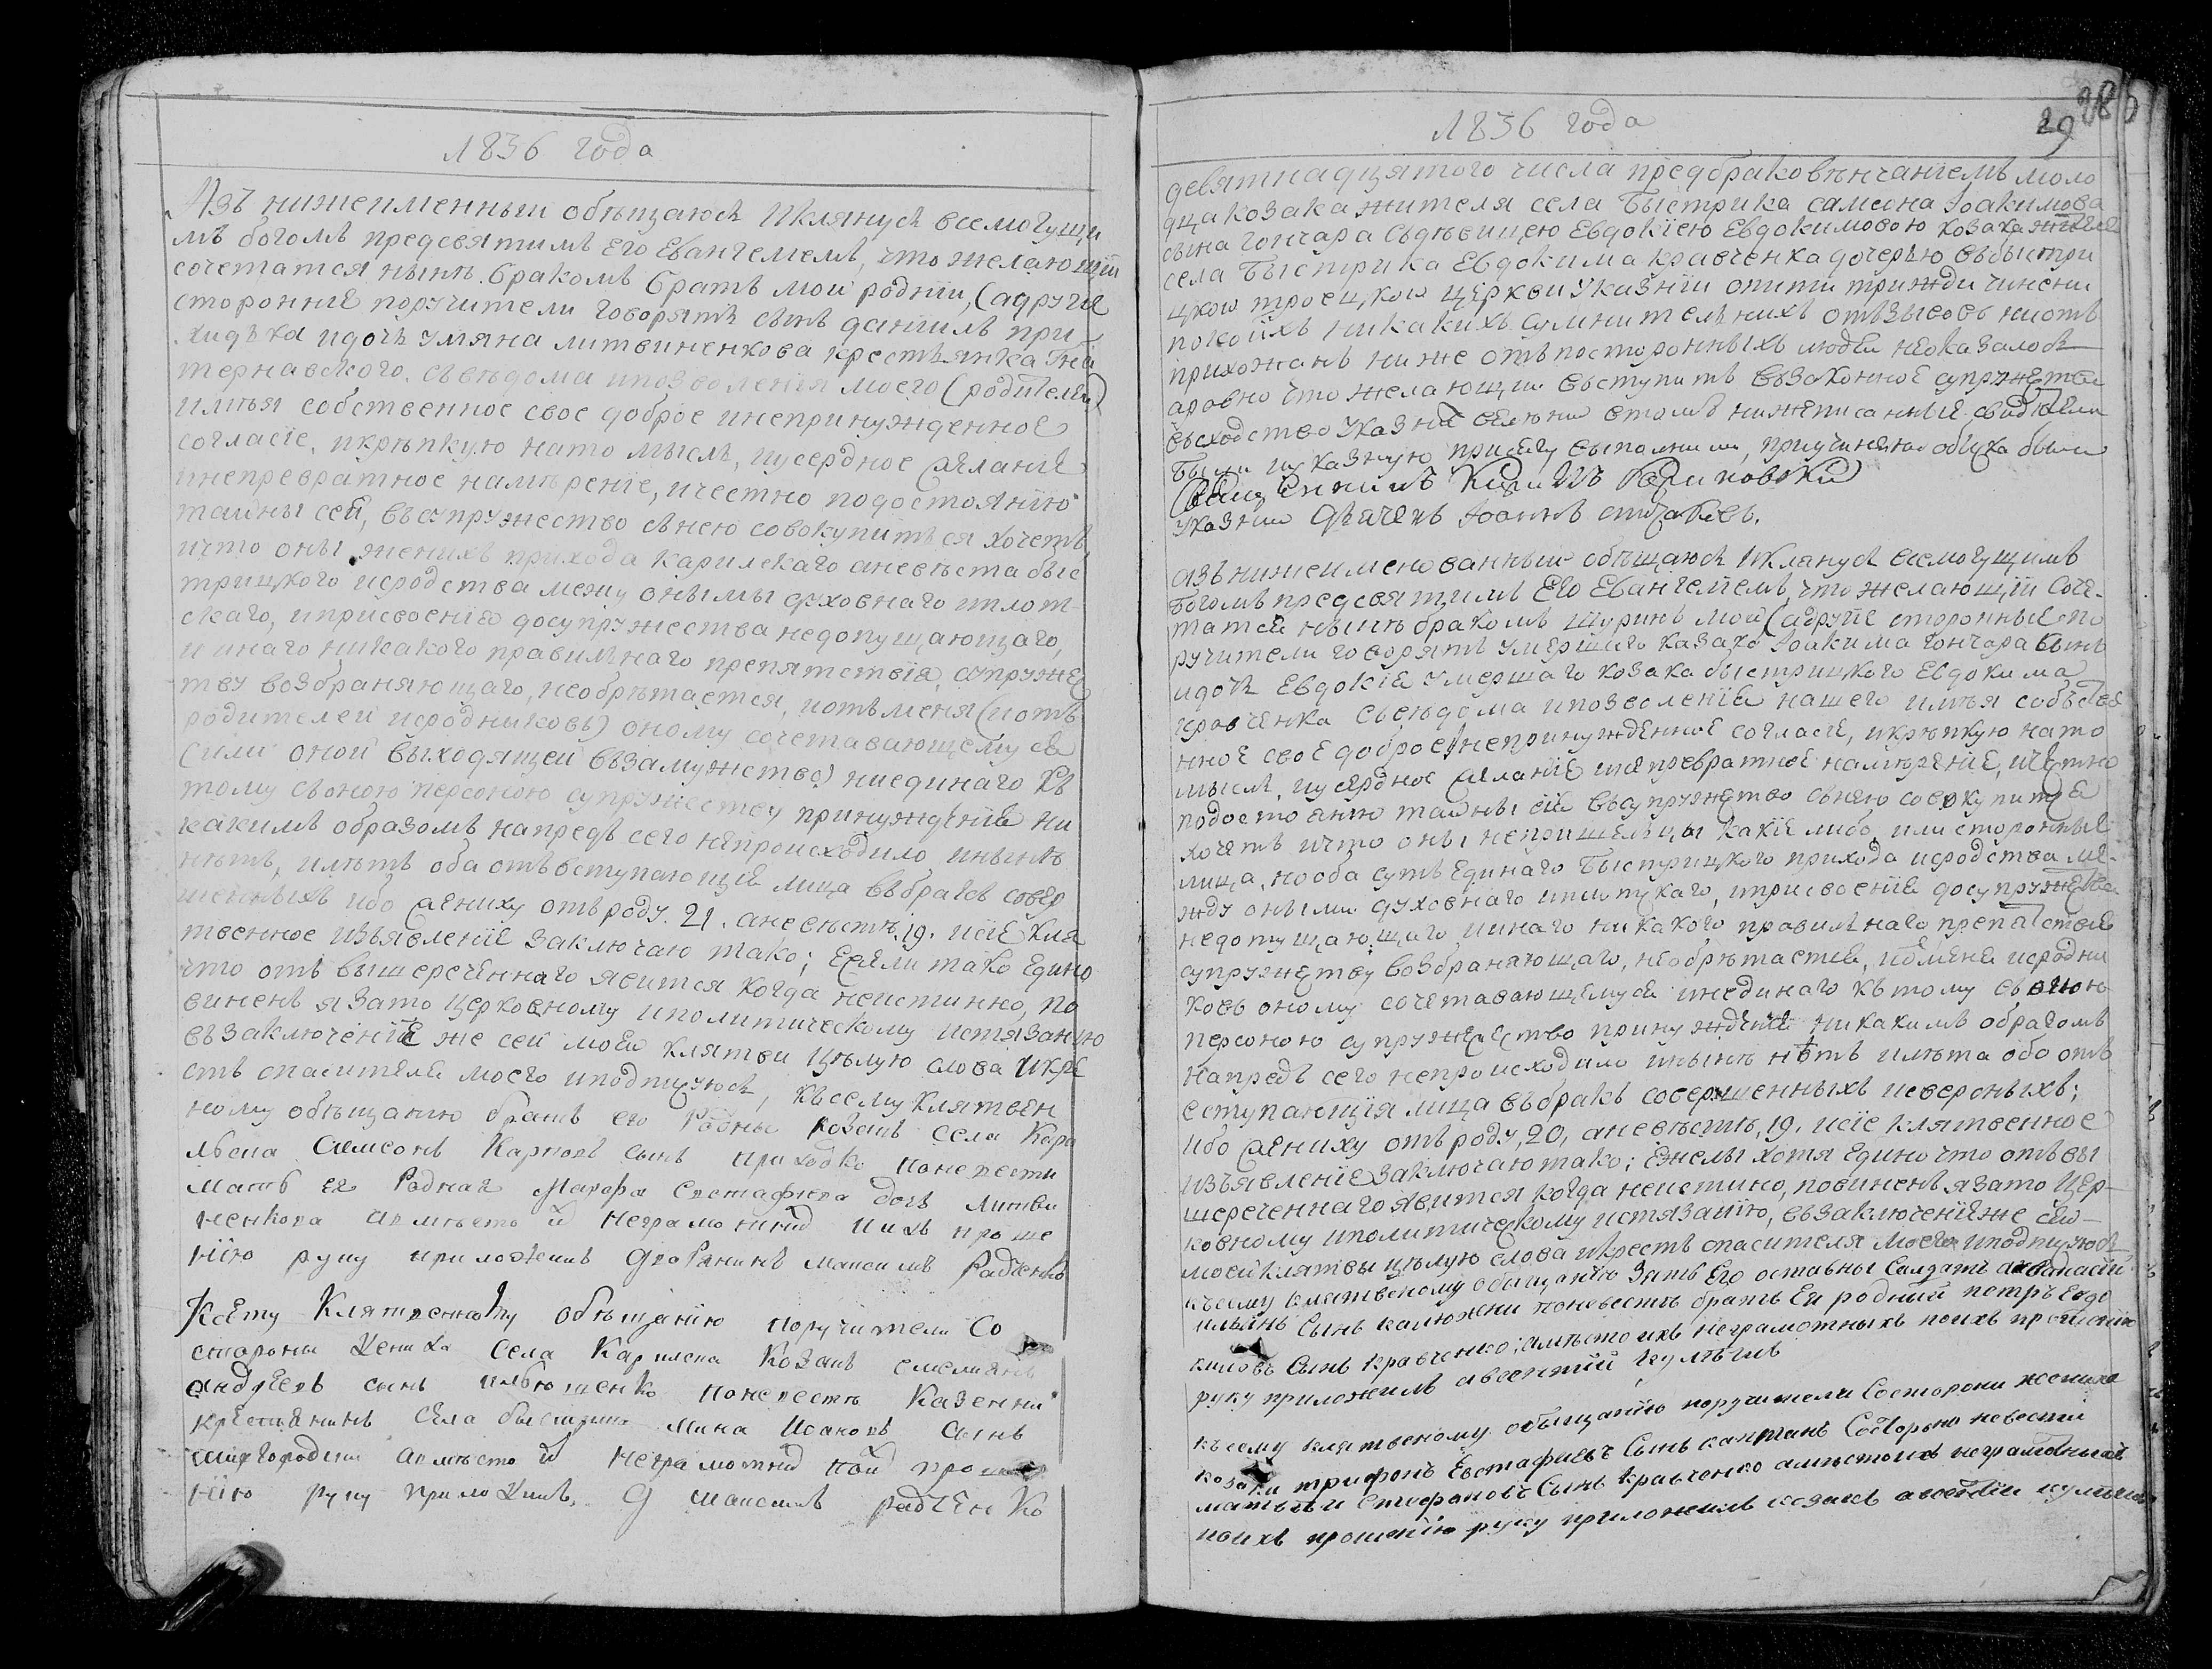 1836 года
Азъ нижеименныи обѣщаюсь и клянусь всемогущи
мъ богомъ предсвятимъ Его Евангемемъ, что желающіи
сочетатся нынѣ бракомъ братъ мои роднıи, (адругıе
сторонніе поручители говорятъ сынъ данıилъ при
ходька идочь Ульяна литвиненкова крестьянка
тернавского. съвѣдома ипозволенıя моего (родителей)
имѣя собственное свое доброе инепринужденное
согласіе, икрѣпкую нато мысль, иусердное желаніе
инепревратное намѣреніе, ичестно подостоянію
таины сей, въсупружество снею совокупитъся хочетъ
ичто оны женихъ прихода карилскаго аневѣста быс
трицкого исродства межу онымы духовнаго иплот-
скаго, иприсвоенıю досупружества недопущающаго,
и инаго никакого правильнаго препятствія, супруже
тву возбраняющаго, необрѣтается, иотъ меня (иотъ
родителеи исродниковъ) оному сочетавающемуся
(или оной выходящей възамужство) ниединаго къ
тому съоною персоною супружеству принужденія ни
какимъ образомъ напредъ сего непроисходило инынѣ
нѣтъ, имѣтъ оба отъвступающіе лица въбракъ совер
шенныхъ ибо жениху отъроду. 21. аневѣстѣ. 19. исіе кля
твенное изъявленіе заключаю тако; Ежели тако Едино
что отъ вышереченнаго явится когда неистинно, по
виненъ я зато церковному иполитическому истязанıю
въ заключеніе же сей моей клятви цѣлую слова икре
стъ спасителя моего иподпısуюсь, къ сему клятвен
ному обѣщанію братъ его Родны козакъ села Кари
льска Самсонъ Карповъ сынъ приходко поневести
матъ ея Родная Марфа Евстафıева дочъ литви
ненкова авместо их неграмотних ииъ проше
нію руку приложилъ дворянинъ максимъ Радченко
Ксему Клятвенному обѣщанію поручители со
стороны жениха Села Карилска Козакъ емелıянъ
андрЕевъ сынъ илюшенко поневестѣ Казенни
крестьянинъ села быстрика Мина Исаковъ сынъ
авместо их неграмотних поих проше
нію руку приложилъ. д максимъ радчЕнко
1836 года
29
девятнадцятого числа предбраковѣнчаніемъ моло
дца козака жителя села Быстрика самсона Іоакимова
сына гончара съдѣвицею Евдокіею Евдокимовою козака жителя
села Быстрика Евдокима кравченка дочерью въбыстри
цкои троецкои ціркви Указніи опити трижди чинени
покоихъ никакихъ сумнителънихъ отъзысовъ ниотъ
прихожанъ ниже отъпосторонныхъ людеи неоказалось
аровно что желающıи въступитъ въ законное супружство
всходство Указнѣ велѣни втомъ нижеписанныè свидѣтели
были иуказную присягу выполнили, приучинении обиска были
Священникъ Кирилъ
указнıи дячекъ Іоаннъ
азъ нижеименованныи обѣщаюсь и клянусь всемогущимъ
богомъ предсвятимъ Его Евангемемъ, что желающіи соче-
татся нынѣ бракомъ шуринъ мои (адругіе сторонные по
ручители говорятъ умершаго казака Іоакима гончара сынъ
идочь Евдокія Умершаго козака быстрицкого Евдокима
кравченка съвѣдома ипозволенія нашего имѣя собъстве
нное своЕ доброе инепринужденное согласіе, икрѣпкую нато
мысль, иусердное желаніе инепревратное намѣреніе, ичестно
подостоянıю таины сіе въсупружество снею совокупитъся
хочетъ ичто оны непришельцы какіе либо, или сторонные
лица, нооба суть Единаго Быстрицкого прихода исродства ме-
жду оными духовнаго иплотскаго, иприсвоенія досупружества
недопущающаго иинаго никакого правилнаго препятствія
супружеству возбраняющаго, необрѣтается, иотменя исродни
ковъ оному сочетавающемуся ниединаго къ тому съоною
персоною супружеиство принужденіе никакимъ образомъ
напредъ сего непроисходило инынѣ нѣтъ имѣта оба отъ
вступающія лица въбракъ совершенныхъ исвероныхъ;
ибо жениху отъроду, 20, аневѣстѣ, 19. исіе клятвенное
изъявленіе заключаю тако; Ежелы хотя Едино что отъвы
шереченнаго явится когда неистино, повиненъ я зато Цер-
ковному иполитическому истязанію, въ заключеніеже сей
моей клятвы цѣлую слова икрестъ спасителя моего иподпısуюсь
къ сему клятвеному обѣщанію зятъ Его оставны салдатъ
сынъ калюжни поневестѣ братъ Ея родний петръ Евдо
кимовъ сынъ кравченко; авместо ихъ неграмотныхъ поихъ прошенію
руку приложилъ авсентий кулѣшъ
къ сему клятвеному обѣщанію поручители состороны жениха
козаки трифонъ Евстафиевъ сынъ каптанъ состороны невести
матвѣй стефановъ сынъ кравченко авместо ихъ неграмотныхъ
поихъ прошенію руку приложилъ козакъ авсентій кулишъ